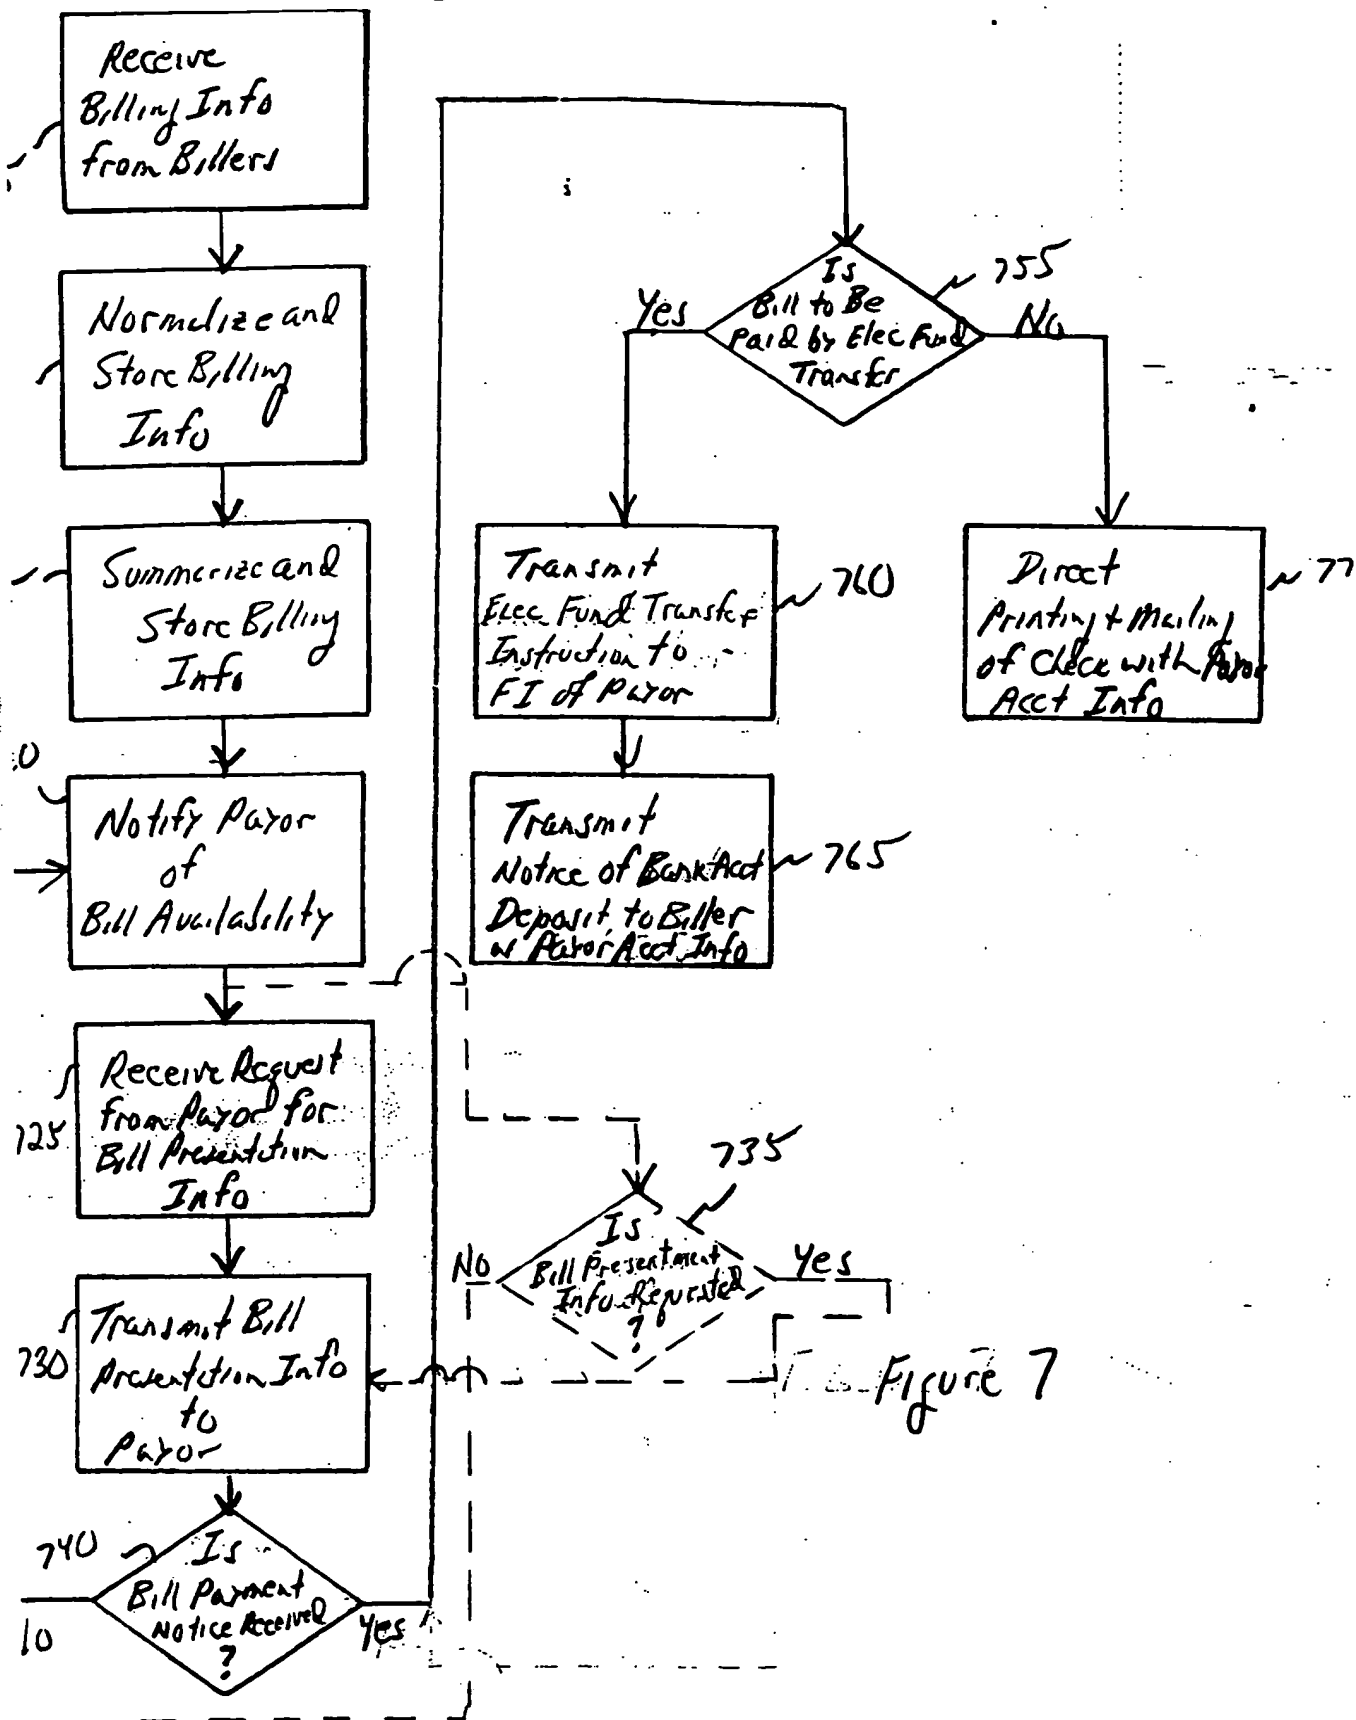 Receive
Billing Info
from Billers
Normalize and
Store Billing
Info
Summarize and
Store Billing
Info
0
Notify Payor
of
Bill Availability
Receive Request
from Payor for
Bill Presentation
Info
725
Transmit Bill
Presentation Info
to
Payor
730
740
Is
Bill Payment
Notice Received
?
Yes
Is
Bill to Be
Paid by Elec Fund
Transfer
755
Yes
No
Transmit
Elec Fund Transfer
Instruction to
FI of Payor
760
Direct
Printing + Mailing
of Check with Payor
Acct Info
77
Transmit
Notice of Bank Acct
Deposit to Biller
w Payor Acct Info
765
735
Is
Bill Presentment
Info Requested
?
No
Yes
Figure 7